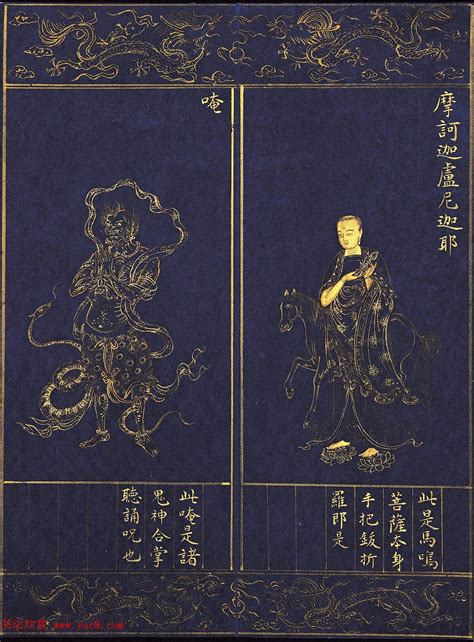 摩訶迦盧尼迦耶
此是馬鳴
菩薩本身
手把鈸折
羅即是
唵
此唵是諸
鬼神合掌
聽誦呪也
www.yac8.com